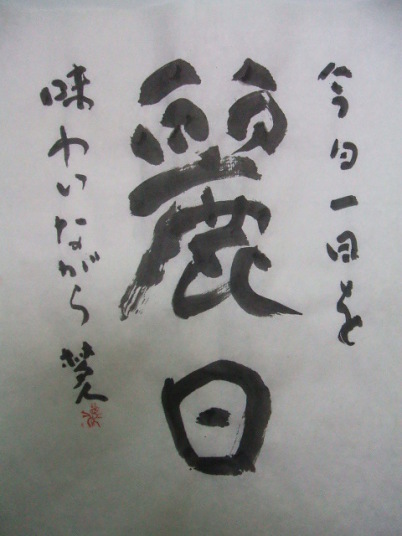 今日一日を
麗日
味わいながら